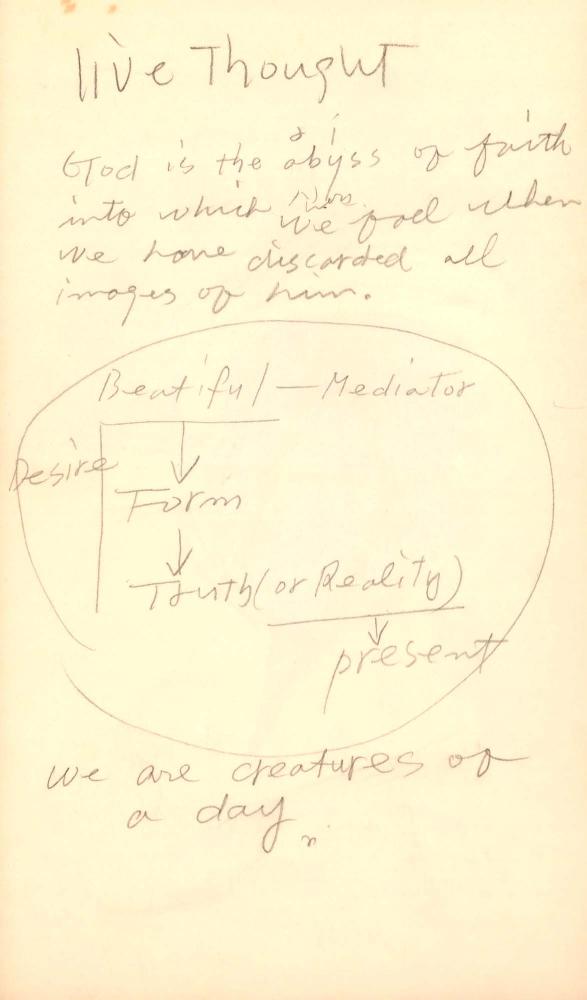 live Thought
God is the abyss of faith
into which we fael when
we have discarded all
images of him.
Beatiful — Mediator
Desire
Form
Truth (or Reality)
present
we are creatures of
a day